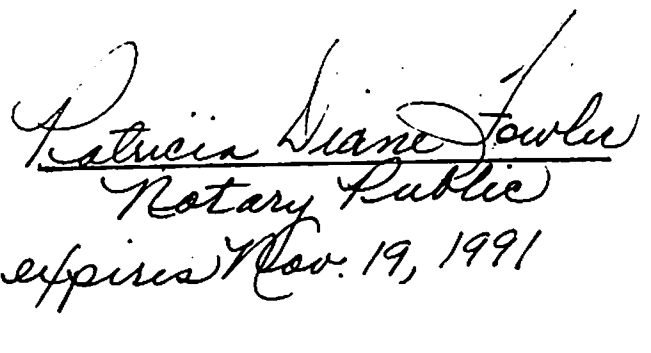 Patricia Diane Fowler
Notary Public
expires Nov. 19, 1991